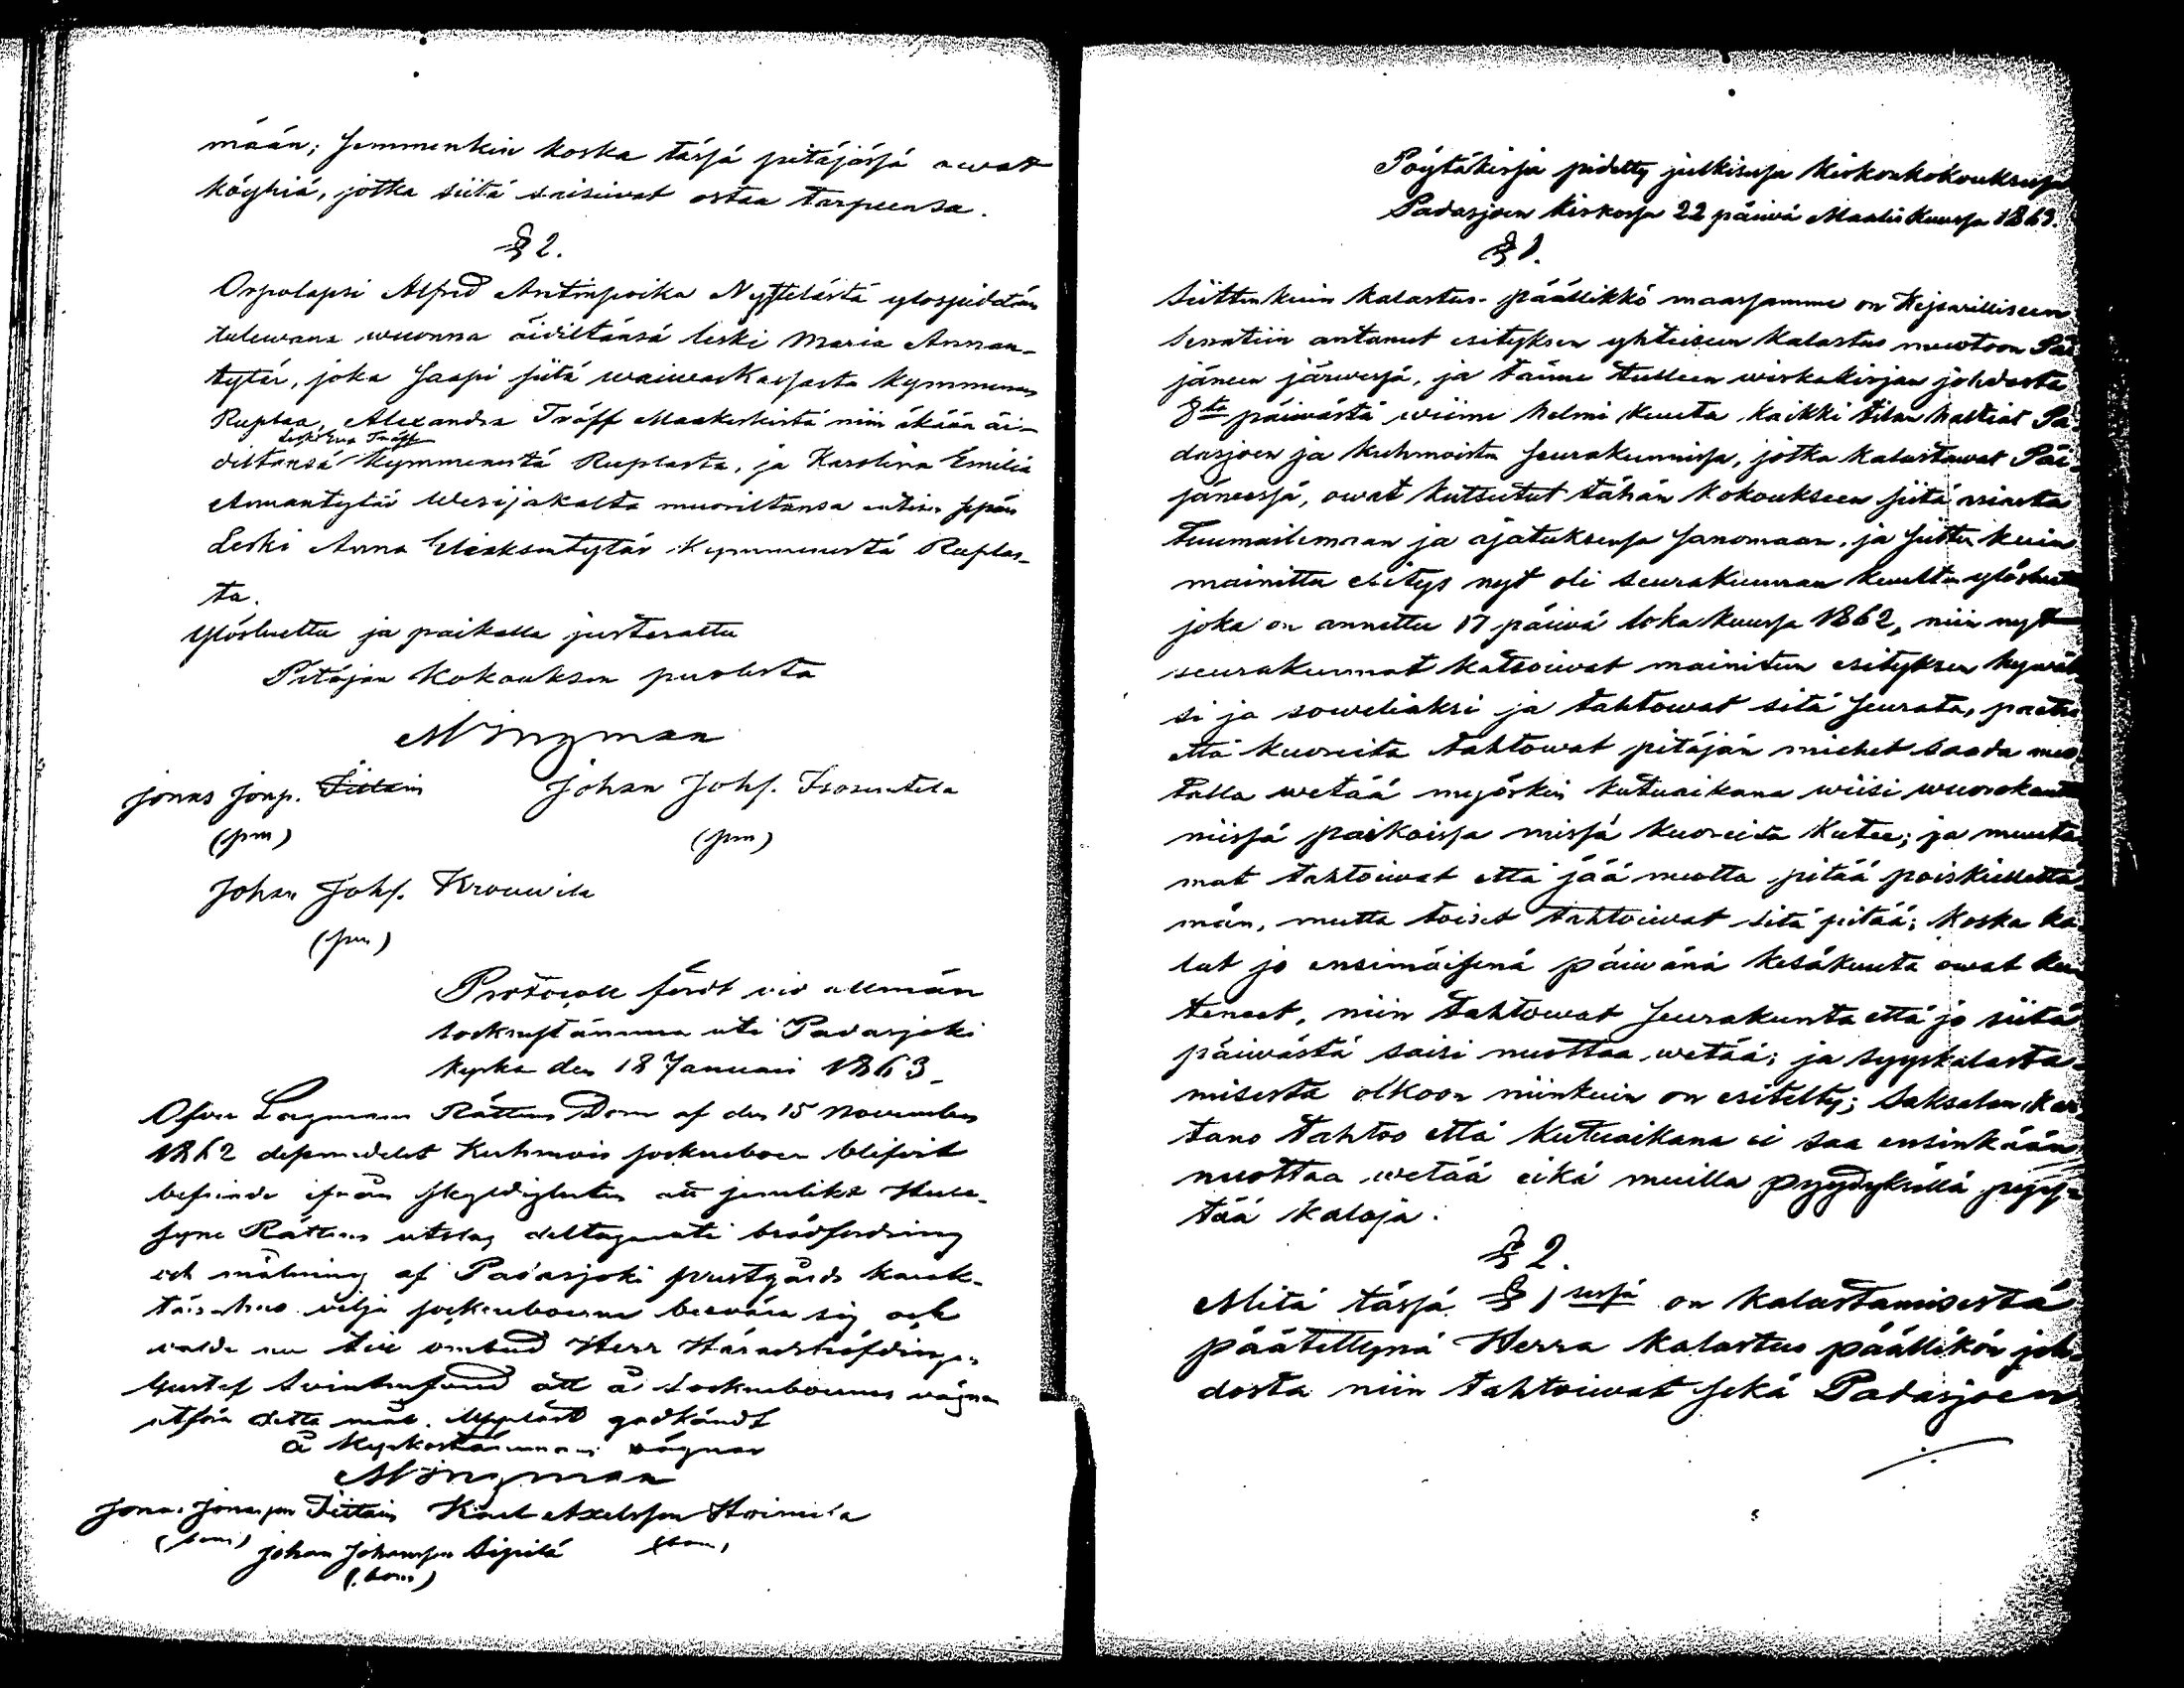 mään; semmenkin koska tässä pitäjässä owat
köyhiä, jotka siitä saisiwat ostaa tarpeensa.
§ 2.
Orpolapsi Alfred Antinpoika Nyystelästä ylospidetän
tulewana wuonna äidiltänsä leski Maria Annan-
tytär, joka saapi siitä waiwaskassasta kymmenen
Ruplaa, Alexandra Träff Maakeskistä niin ikään äi-
Leski Eva Träff
diltansä kymmenestä Ruplasta, ja Karolina Emilia
Annantytär Wesijakolta muoriltansa entisen
Leski Anna Eliaksentytär Kymmenestä Ruplas-
ta.
Ylösluettu ja paikalla justerattu
Pitäjän Kokouksen puolesta
M Ingman
Jonas Jonss. Tittain Johan Johs. Isosuntila
(pm) (pm)
Johan Johs. Krouwila
(pm)
Protocoll fördt vid allmän
sockenstämma uti Padasjoki
kyrka den 18 Januari 1863.
Ofvan Lagmans Rättens Dom af den 15 November
1862 Kuhmois sockneboer blifvit
befriade ifrån skyldigheten att jemlikt Huse-
syns Rättens utslag deltaga uti brädfordring
och målning af Padasjoki prestgårds karak-
tärshus vilja sockneboerne besvära sig och
valde nu till ombud Herr Häradshöfdingen
Gustaf Svinhufvud att å Sockneboernes vägnar
utföra detta mål. Uppläst godkändt
å Kyrkostämmans vägnar
M Ingman
Jonas Jonasson Tittain Karl Axelsson Hoimela
(bom) Johan Johansson Sipilä (bom)
(bom)
Pöytäkirja pidetty julkisessa kirkonkokouksessa
Padasjoen kirkossa 22 päiwä Maaliskuussa 1863.
§ 1.
Siittenkuin kalastus-päällikkö maassamme on Kejsarilliseen
Senatiin antanut esityksen yhteiseen kalastus muotoon Päi
jäneen järwessä, ja tänne tulleen wirkakirjan johdosta
8ta päiwästä wiime helmi kuuta kaikki tilan haltiat Pa-
dasjoen ja Kuhmoisten seurakunnissa, jotka kalastawat Päi-
jäneessä, owat kutsutut tähän kokoukseen siitä asiasta
tuumailemaan ja ajatuksensa sanomaan, ja siitten kuin
mainittu esitys nyt oli seurakunnan kuullen ylösluettu
joka on annettu 17 päiwä lokakuussa 1862, niin nyt
seurakunnat katsoiwat mainitun esityksen hywäk
si ja soweliaksi ja tahtowat sitä seurata, paitsi
että kuoreita tahtowat pitäjän miehet saada nuo
talla wetää myöskin kutuaikana wiisi wuorokautta
niissä paikoissa missä kuoreita kutee; ja muuta
mat tahtoiwat että jää nuotta pitää poiskiellettä
män, mutta toiset tahtoiwat sitä pitää; koska ka
lat jo ensimäisenä päiwänä kesäkuuta owat ku
teneet, niin tahtowat seurakunta että jo siitä
päiwästä saisi nuottaa wetää; ja syyskalasta-
misesta olkoon niinkuin on esitelty; Saksalan Kar
tano tahtoo että kutuaikana ei saa ensinkään
nuottaa wetää eikä muilla pyydyksillä pyys-
tää kaloja.
§ 2.
Mitä tässä § 1sessä on kalastamisesta
päätettynä Herra kalastus päällikön joh-
dosta niin tahtoiwat sekä Padasjoen
./.